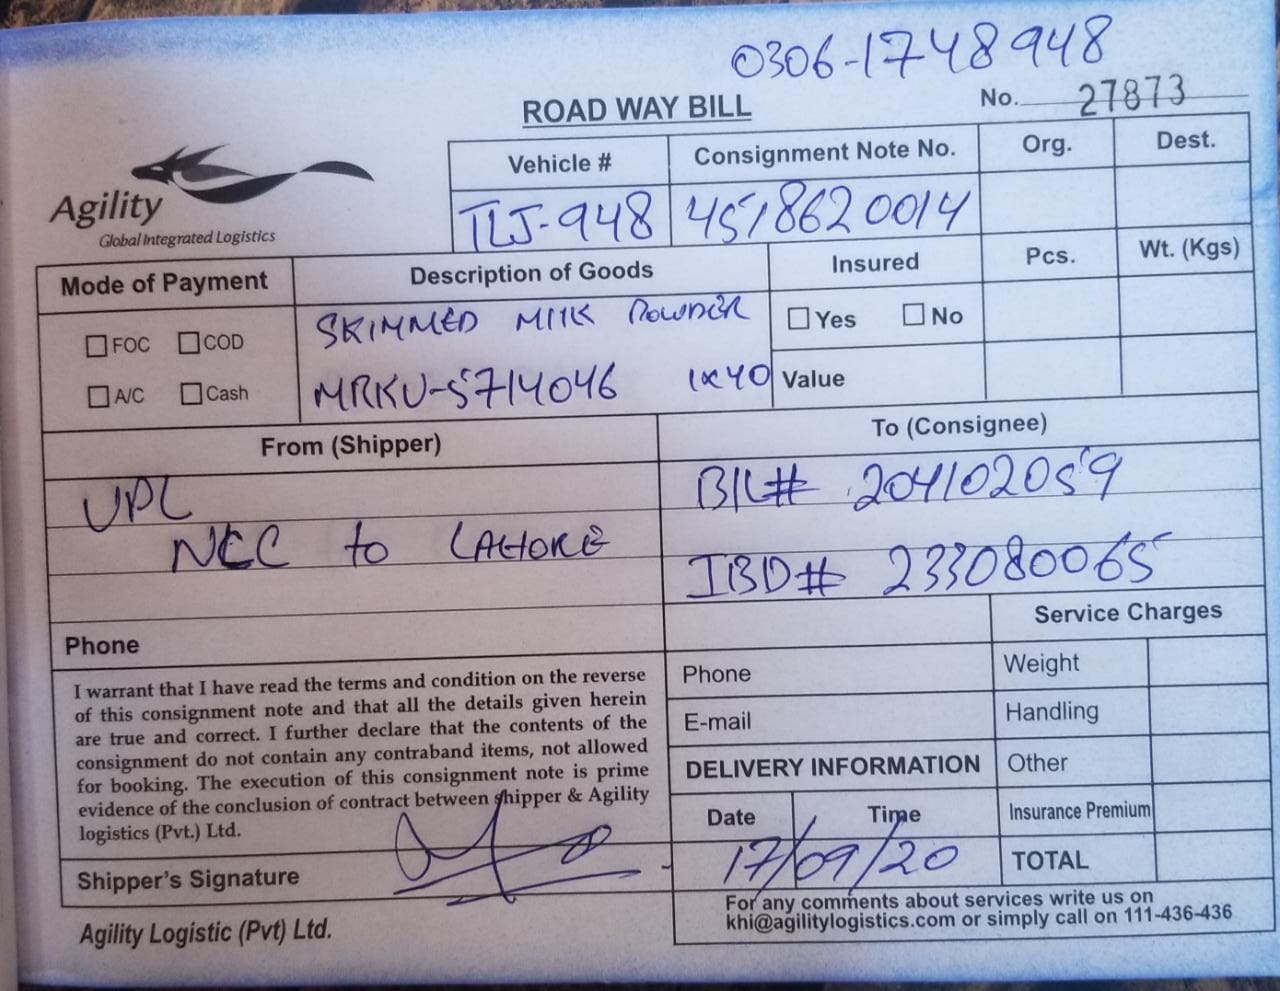 0306-1748948
ROAD WAY BILL
No. 27873
Agility
Global Integrated Logistics
Vehicle #
Consignment Note No.
Org.
Dest.
TLJ-948
4518620014
Mode of Payment
Description of Goods
Insured
Pcs.
Wt. (Kgs)
FOC
COD
SKIMMED MILK POWDER
Yes
No
A/C
Cash
MRKU-5714046 1x40
Value
From (Shipper)
To (Consignee)
UPL
B/L# 204102059
NLC to LAHORE
IBD# 233080065
Service Charges
Phone
Phone
Weight
I warrant that I have read the terms and condition on the reverse
of this consignment note and that all the details given herein
are true and correct. I further declare that the contents of the
consignment do not contain any contraband items, not allowed
for booking. The execution of this consignment note is prime
evidence of the conclusion of contract between shipper & Agility
logistics (Pvt.) Ltd.
E-mail
Handling
DELIVERY INFORMATION
Other
Date
Time
Insurance Premium
17/09/20
TOTAL
Shipper's Signature
For any comments about services write us on
khi@agilitylogistics.com or simply call on 111-436-436
Agility Logistic (Pvt) Ltd.